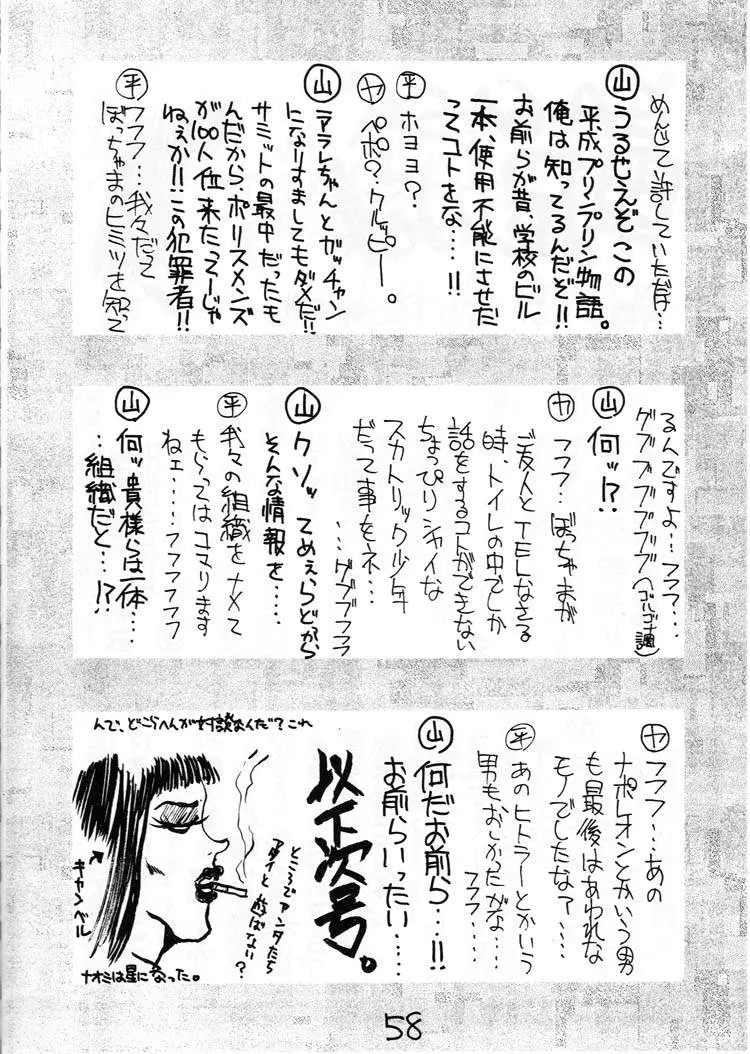 めんじて許していただけ…
㊤うるせえぞこの
平成プリンプリン物語。
俺は知ってるんだぞ!!
お前らが昔、学校のビル
一本、使用不能にさせた
ってコトをな…!!
㊥ホヨヨ?
ヤ ペポ?クルッピー。
山 アラレちゃんとガッチャン
になりすましてもダメだ!!
サミットの最中だったも
んだから、ポリスメンズ
が100人位来たってーじゃ
ねぇか!!この犯罪者!!
平 ウフフ…我々だって
ぼっちゃまのヒミツを知って
るんですよ…フフフ…
グブブブブブブ(ゴルゴナ調)
山 何ッ!?
ヤ フフフ…ぼっちゃまが
ご友人とTELしなさる
時、トイレの中でしか
話をするコトができない
ちょっぴりシャイな
スカトリック少年
だって事をネ…
…グブブフフフ
山 クソッてめぇらどから
そんな情報を……
平 我々の組織をナメて
もらってはコマります
ねェ……フフフフフ
山 何ッ貴様らは一体……
…組織だと…!?
ヤ フフフ…あの
ナポレオンとかいう男
も最後はあわれな
モノでしたなァ……
平 あのヒトラーとかいう
男もおしかったがな……
フフフ……
山 何だお前ら…!!
お前らいったい……
以下次号。
んで、どこらへんが対談なんだ?これ
ところでアンタたち
アタイと遊ばない?
キャンベル
ナオミは星になった。
58